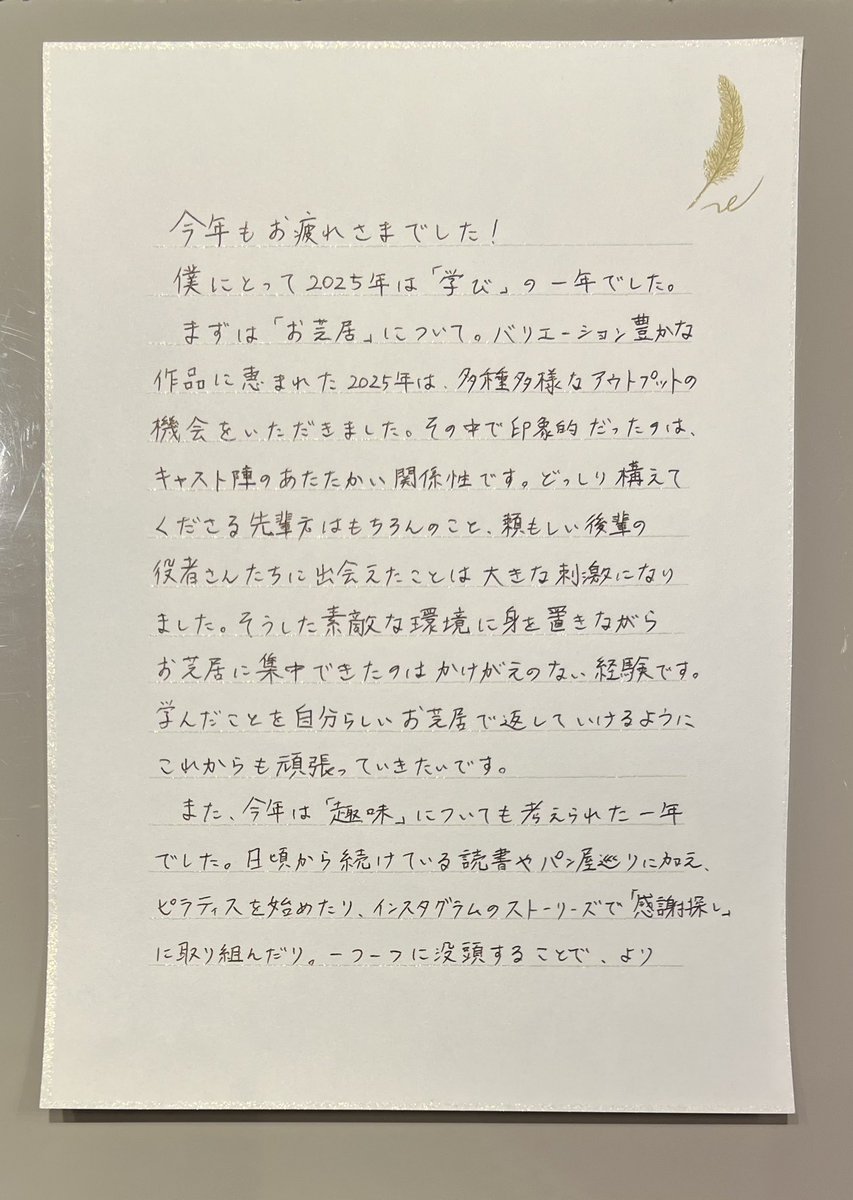 今年もお疲れさまでした！
僕にとって2025年は「学び」の一年でした。
まずは「お芝居」について。バリエーション豊かな
作品に恵まれた2025年は、多種多様なアウトプットの
機会をいただきました。その中で印象的だったのは、
キャスト陣のあたたかい関係性です。どっしり構えて
くださる先輩方はもちろんのこと、頼もしい後輩の
役者さんたちに出会えたことは大きな刺激になり
ました。そうした素敵な環境に身を置きながら
お芝居に集中できたのはかけがえのない経験です。
学んだことを自分らしいお芝居で返していけるように
これからも頑張っていきたいです。
また、今年は「趣味」についても考えられた一年
でした。日頃から続けている読書やパン屋巡りに加え、
ピラティスを始めたり、インスタグラムのストーリーズで「感謝探し」
に取り組んだり。一つ一つに没頭することで、より